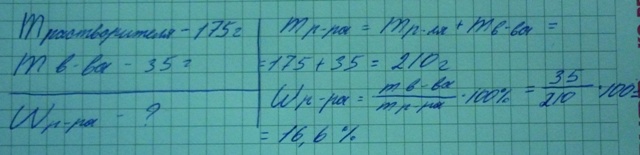 m растворителя - 175 г
m в-ва - 35 г
W р-ра - ?
m р-ра = m р-ля + m в-ва =
= 175 + 35 = 210 г
W р-ра = m в-ва / m р-ра · 100% = 35 / 210 · 100%
= 16,6 %